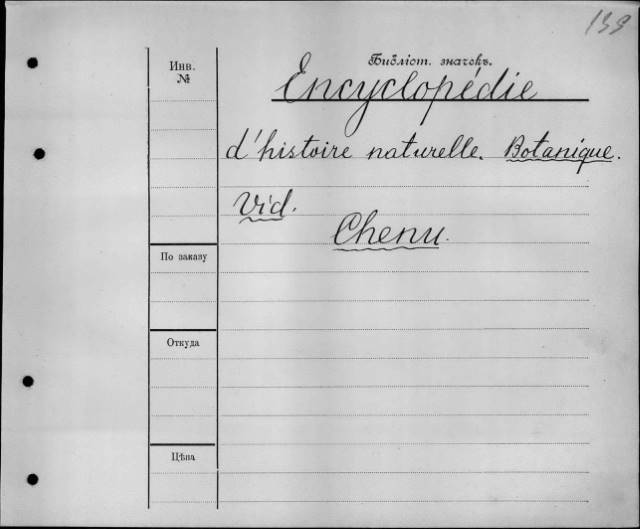 139
Библіот. значекъ.
Инв.
№
Encyclopédie
d'histoire naturelle. Botanique.
Vid.
Chenu.
По заказу
Откуда
Цѣна